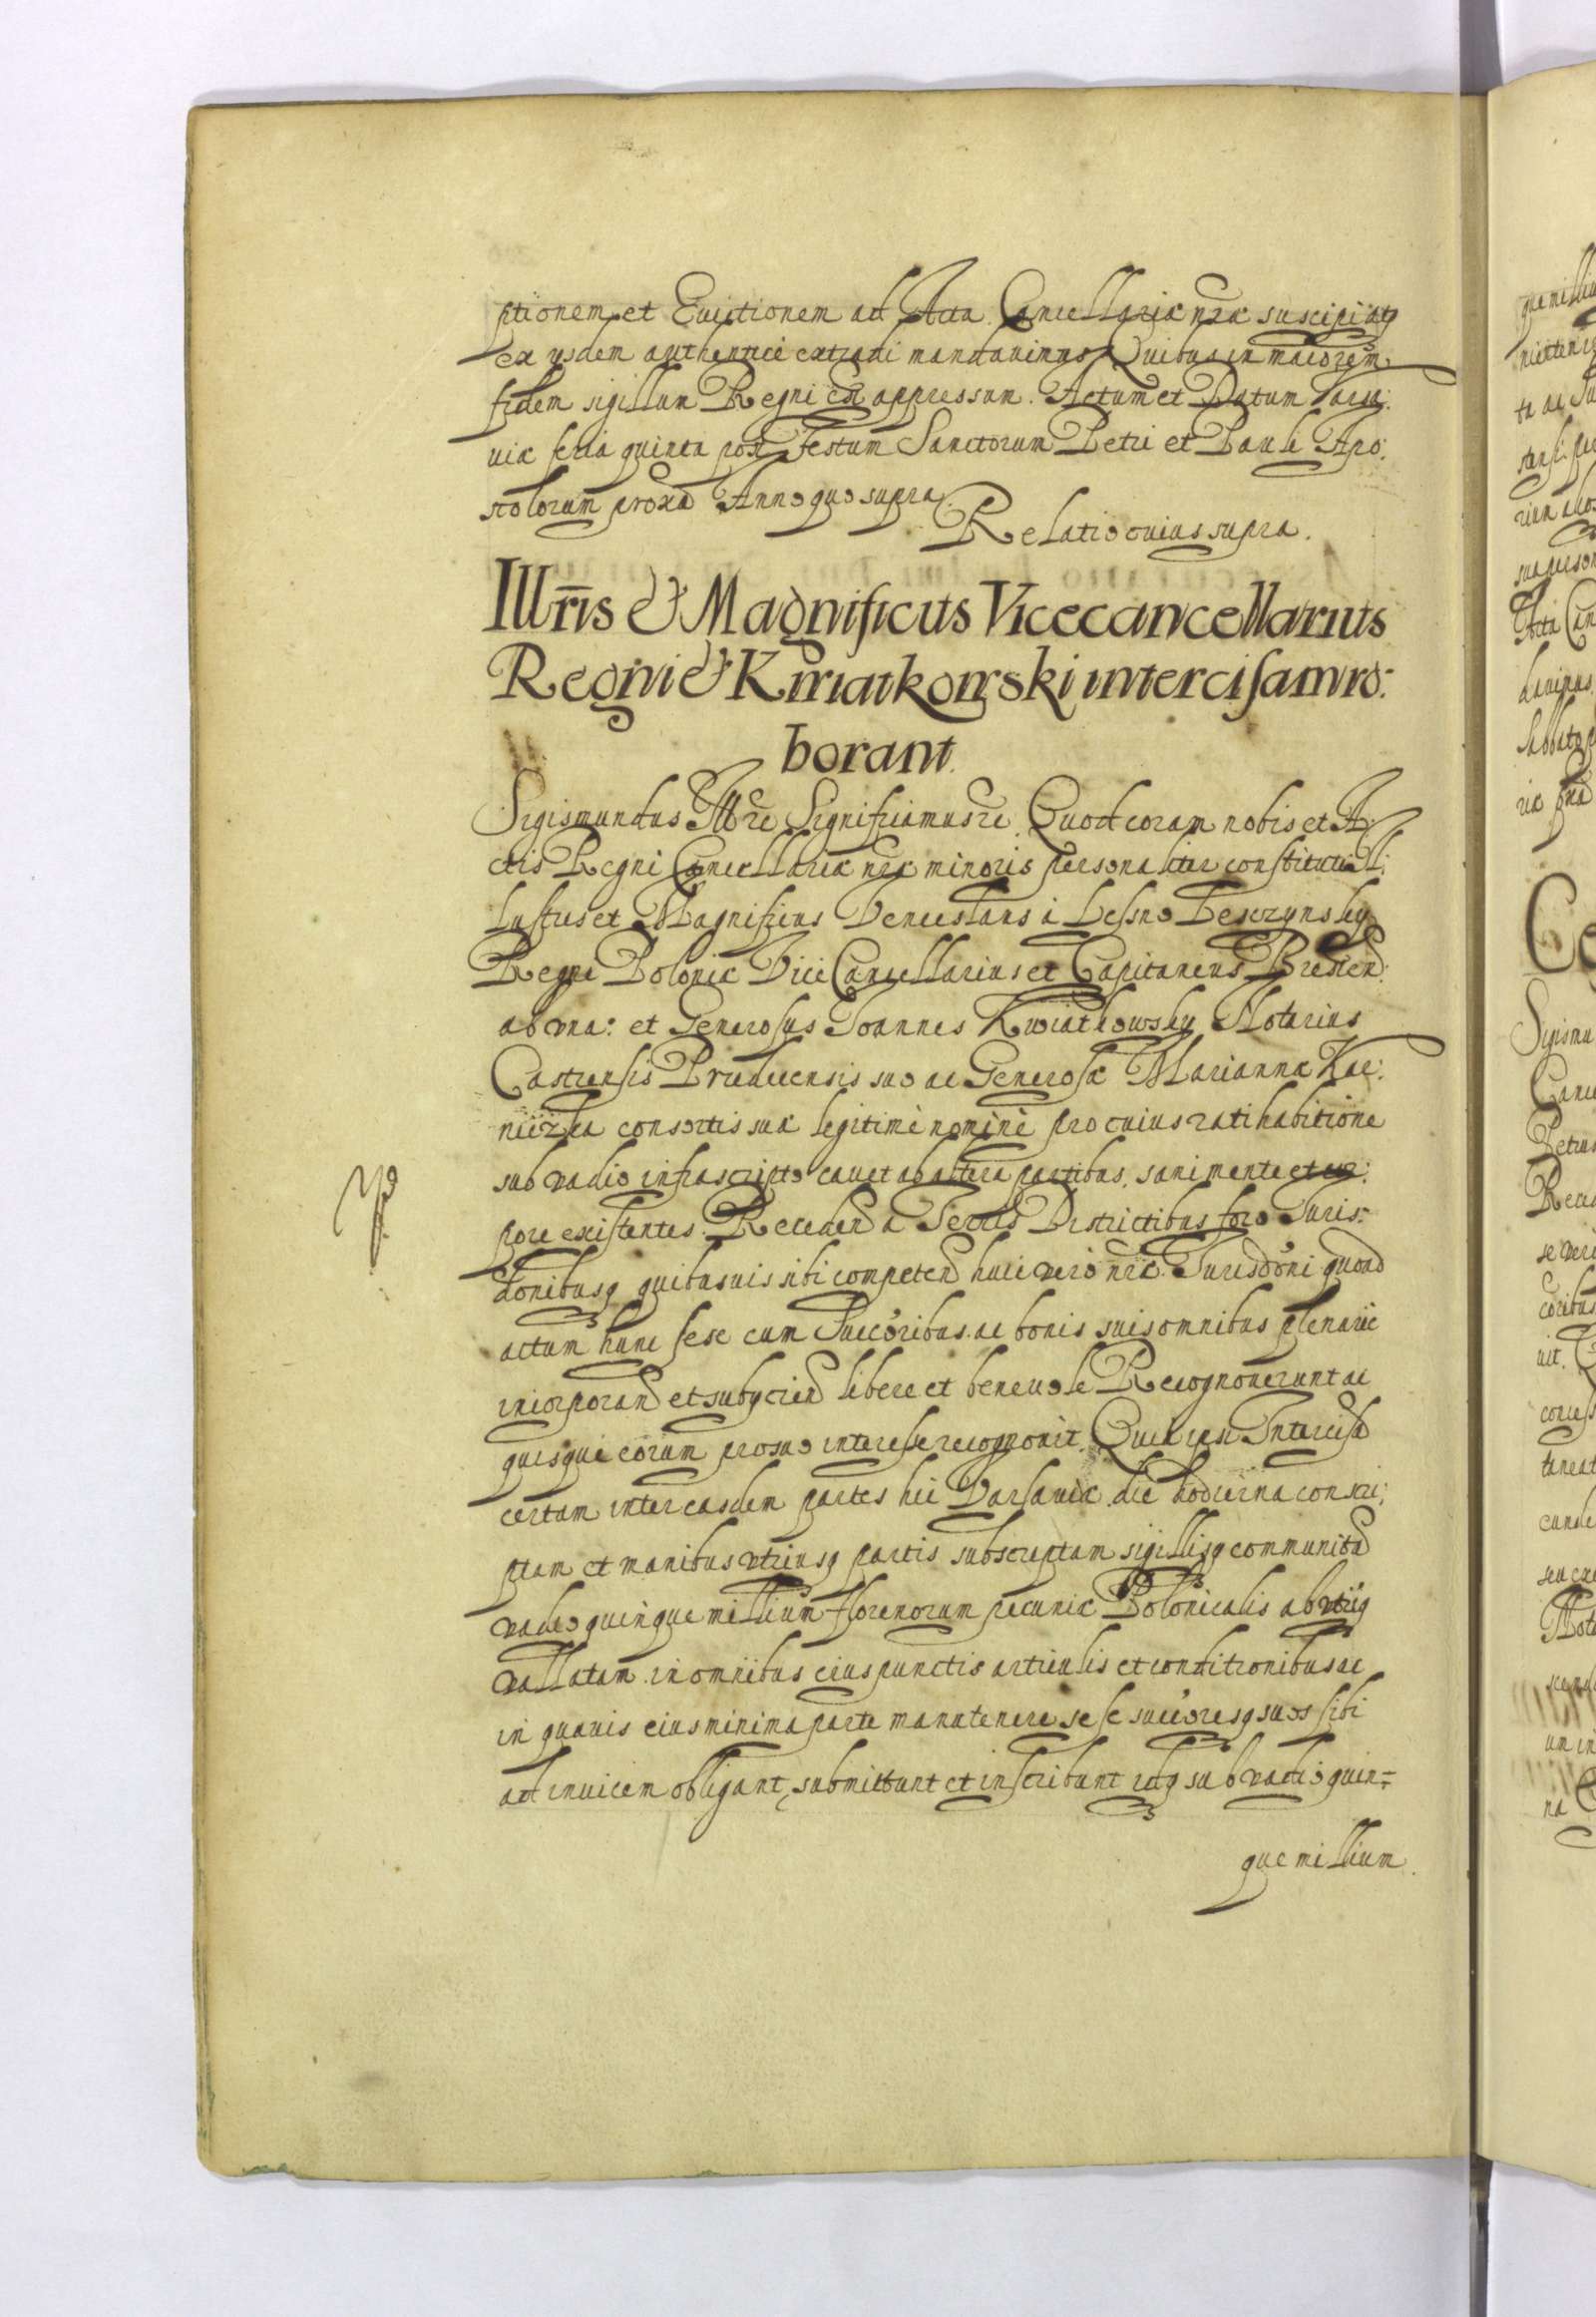 ptionem et Euictionem ad Acta Cancellariæ nræ suscipi atq
ex ysdem authenticè extradi mandauimus Quibus in maiorem
fidem sigillum Regni est appressum. Actum et Datum Varsa:
uiæ feria quinta post Festum Sanctorum Petri et Pauli Apo:
stolorum proxa Anno quo supra.
Relatio cuius supra.
Illris & Magnificus Vicecancellarius
Regni & Kwiatkowski intercisam ro:
borant.
Sigismundus III re Significamus re Quod coram nobis et A:
ctis Regni Cancellariæ nræ minoris personaliter constituti Il:
lustris et Magnificus Venceslaus à Lessno Lesczynsky
Regni Poloniæ Vice Cancellarius et Capitaneus Bresten:
ab vna: et Generosus Joannes Kwiatkowsky Notarius
Castrensis suo ac Generosæ Mariannæ
consortis suæ legitimè nominè pro cuius ratihabitione
sub vadio infrascripto cauet ab altera partibus, sani mente et cor:
pore existentes. Receden a Terris Districtibus foro Juris:
donibusq quibusuis sibi competen huic verò nræ Jurisdoni quoad
actum hunc sese cum Succoribus ac bonis suis omnibus plenariè
incorporan et subycien liberè et beneuolè Recognouerunt ac
quisque eorum pro suo interesse recognouit. Quia ipsi Intercisã
certam inter easdem partes hic Varsauiæ die hodierna conscri:
ptam et manibus vtriusq partis subscriptam sigillisq communitã
vadio quinque millium florenorum pecuniæ Polonicalis ab vtrinq
vallatam in omnibus eius punctis articulis et conditionibus ac
in quauis eius minima parte manutenere sese succoresq suos sibi
ad inuicem obligant, submittunt et inscribunt idq sub vadio quin=
que millium